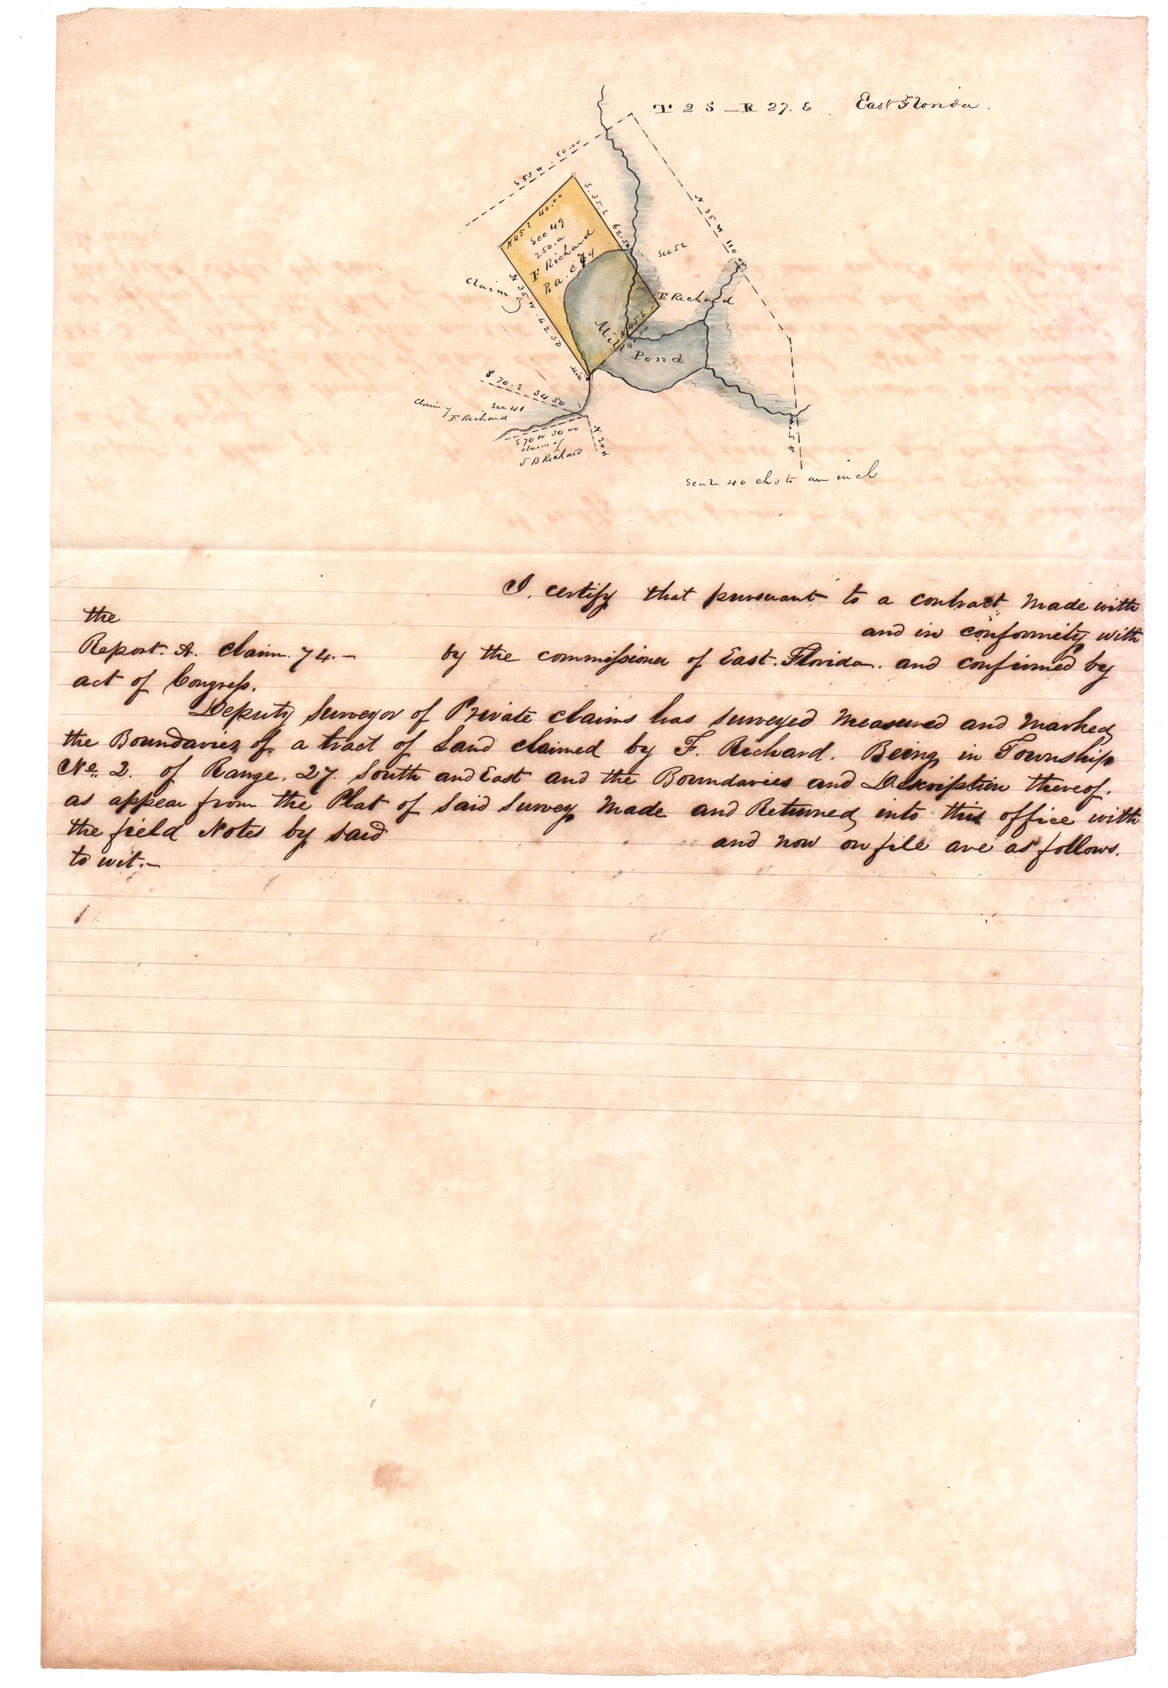 T 2 S — R 27. E East Florida.
S 53 W 50.00
N 45. E 40.00
S. 35. E 62.50
Sec 49
250. a
F. Richard
R A. C 74
N 35 W 62.50
N 35 W 110
Sec 52
F Richard
Claim of
Mill Pond
S 70. E 34 50
Claim of Sec 48
F Richard
S 70 W 30 00
Claim of
J B Richard
Scale 40 chs to an inch
I. certify that pursuant to a contract made with
the and in conformity with
Report. A. claim. 74. — by the commissioner of East. Florida. and confirmed by
act of Congress.
Deputy Surveyor of Private claims has surveyed measured and marked
the Boundaries of a tract of Land claimed by F. Richard. Being in Township
No. 2. of Range. 27. South and East and the Boundaries and Description thereof.
as appear from the Plat of Said Survey made and Returned into this office with
the field Notes by said and now on file are as follows.
to wit. —